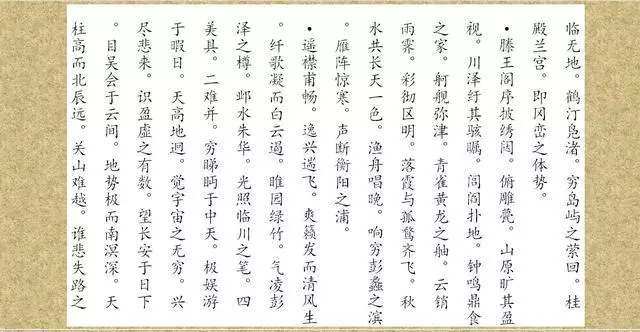 临无地。鹤汀凫渚。穷岛屿之萦回。桂
殿兰宫。即冈峦之体势。
•滕王阁序披绣闼。俯雕甍。山原旷其盈
视。川泽纡其骇瞩。闾阎扑地。钟鸣鼎食
之家。舸舰弥津。青雀黄龙之舳。云销
雨霁。彩彻区明。落霞与孤鹜齐飞。秋
水共长天一色。渔舟唱晚。响穷彭蠡之滨
。雁阵惊寒。声断衡阳之浦。
•遥襟甫畅。逸兴遄飞。爽籁发而清风生
。纤歌凝而白云遏。睢园绿竹。气凌彭
泽之樽。邺水朱华。光照临川之笔。四
美具。二难并。穷睇眄于中天。极娱游
于暇日。天高地迥。觉宇宙之无穷。兴
尽悲来。识盈虚之有数。望长安于日下
。目吴会于云间。地势极而南溟深。天
柱高而北辰远。关山难越。谁悲失路之